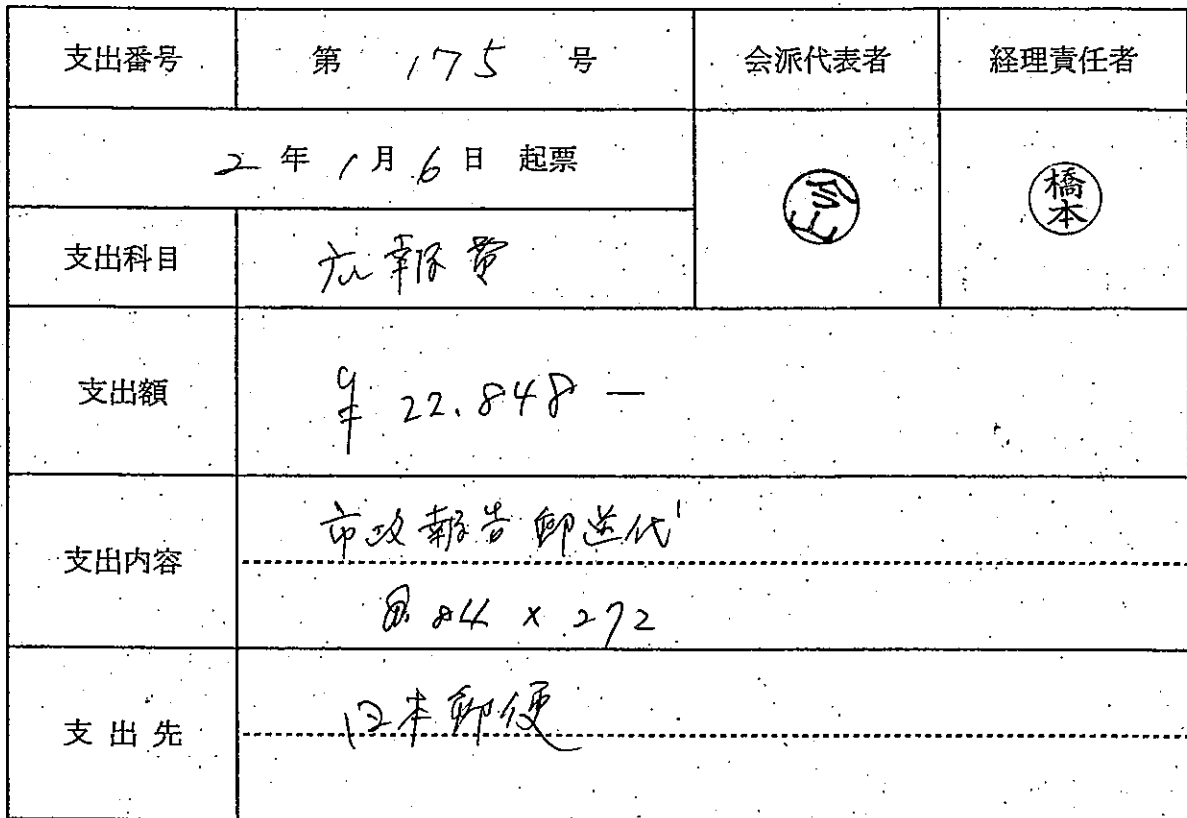 支出番号 第 175 号 会派代表者 経理責任者
2 年 1 月 6 日 起票
今山 橋本
支出科目 広報費
支出額 ¥ 22.848 ―
支出内容 市政報告郵送代
@ 84 × 272
支出先 日本郵便